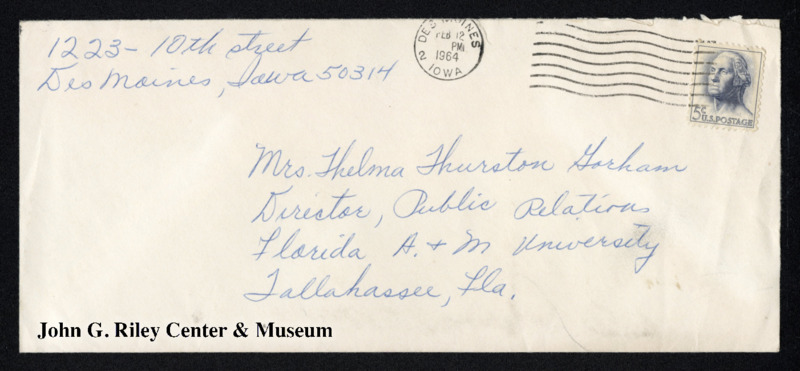 1223- 10th street
Des Moines, Iowa 50314
DES MOINES
FEB 12
PM
2 1964
IOWA
5¢
U.S. POSTAGE
Mrs. Thelma Thurston Gorham
Director, Public Relations
Florida A. & M University
Tallahassee, Fla.
John G. Riley Center & Museum